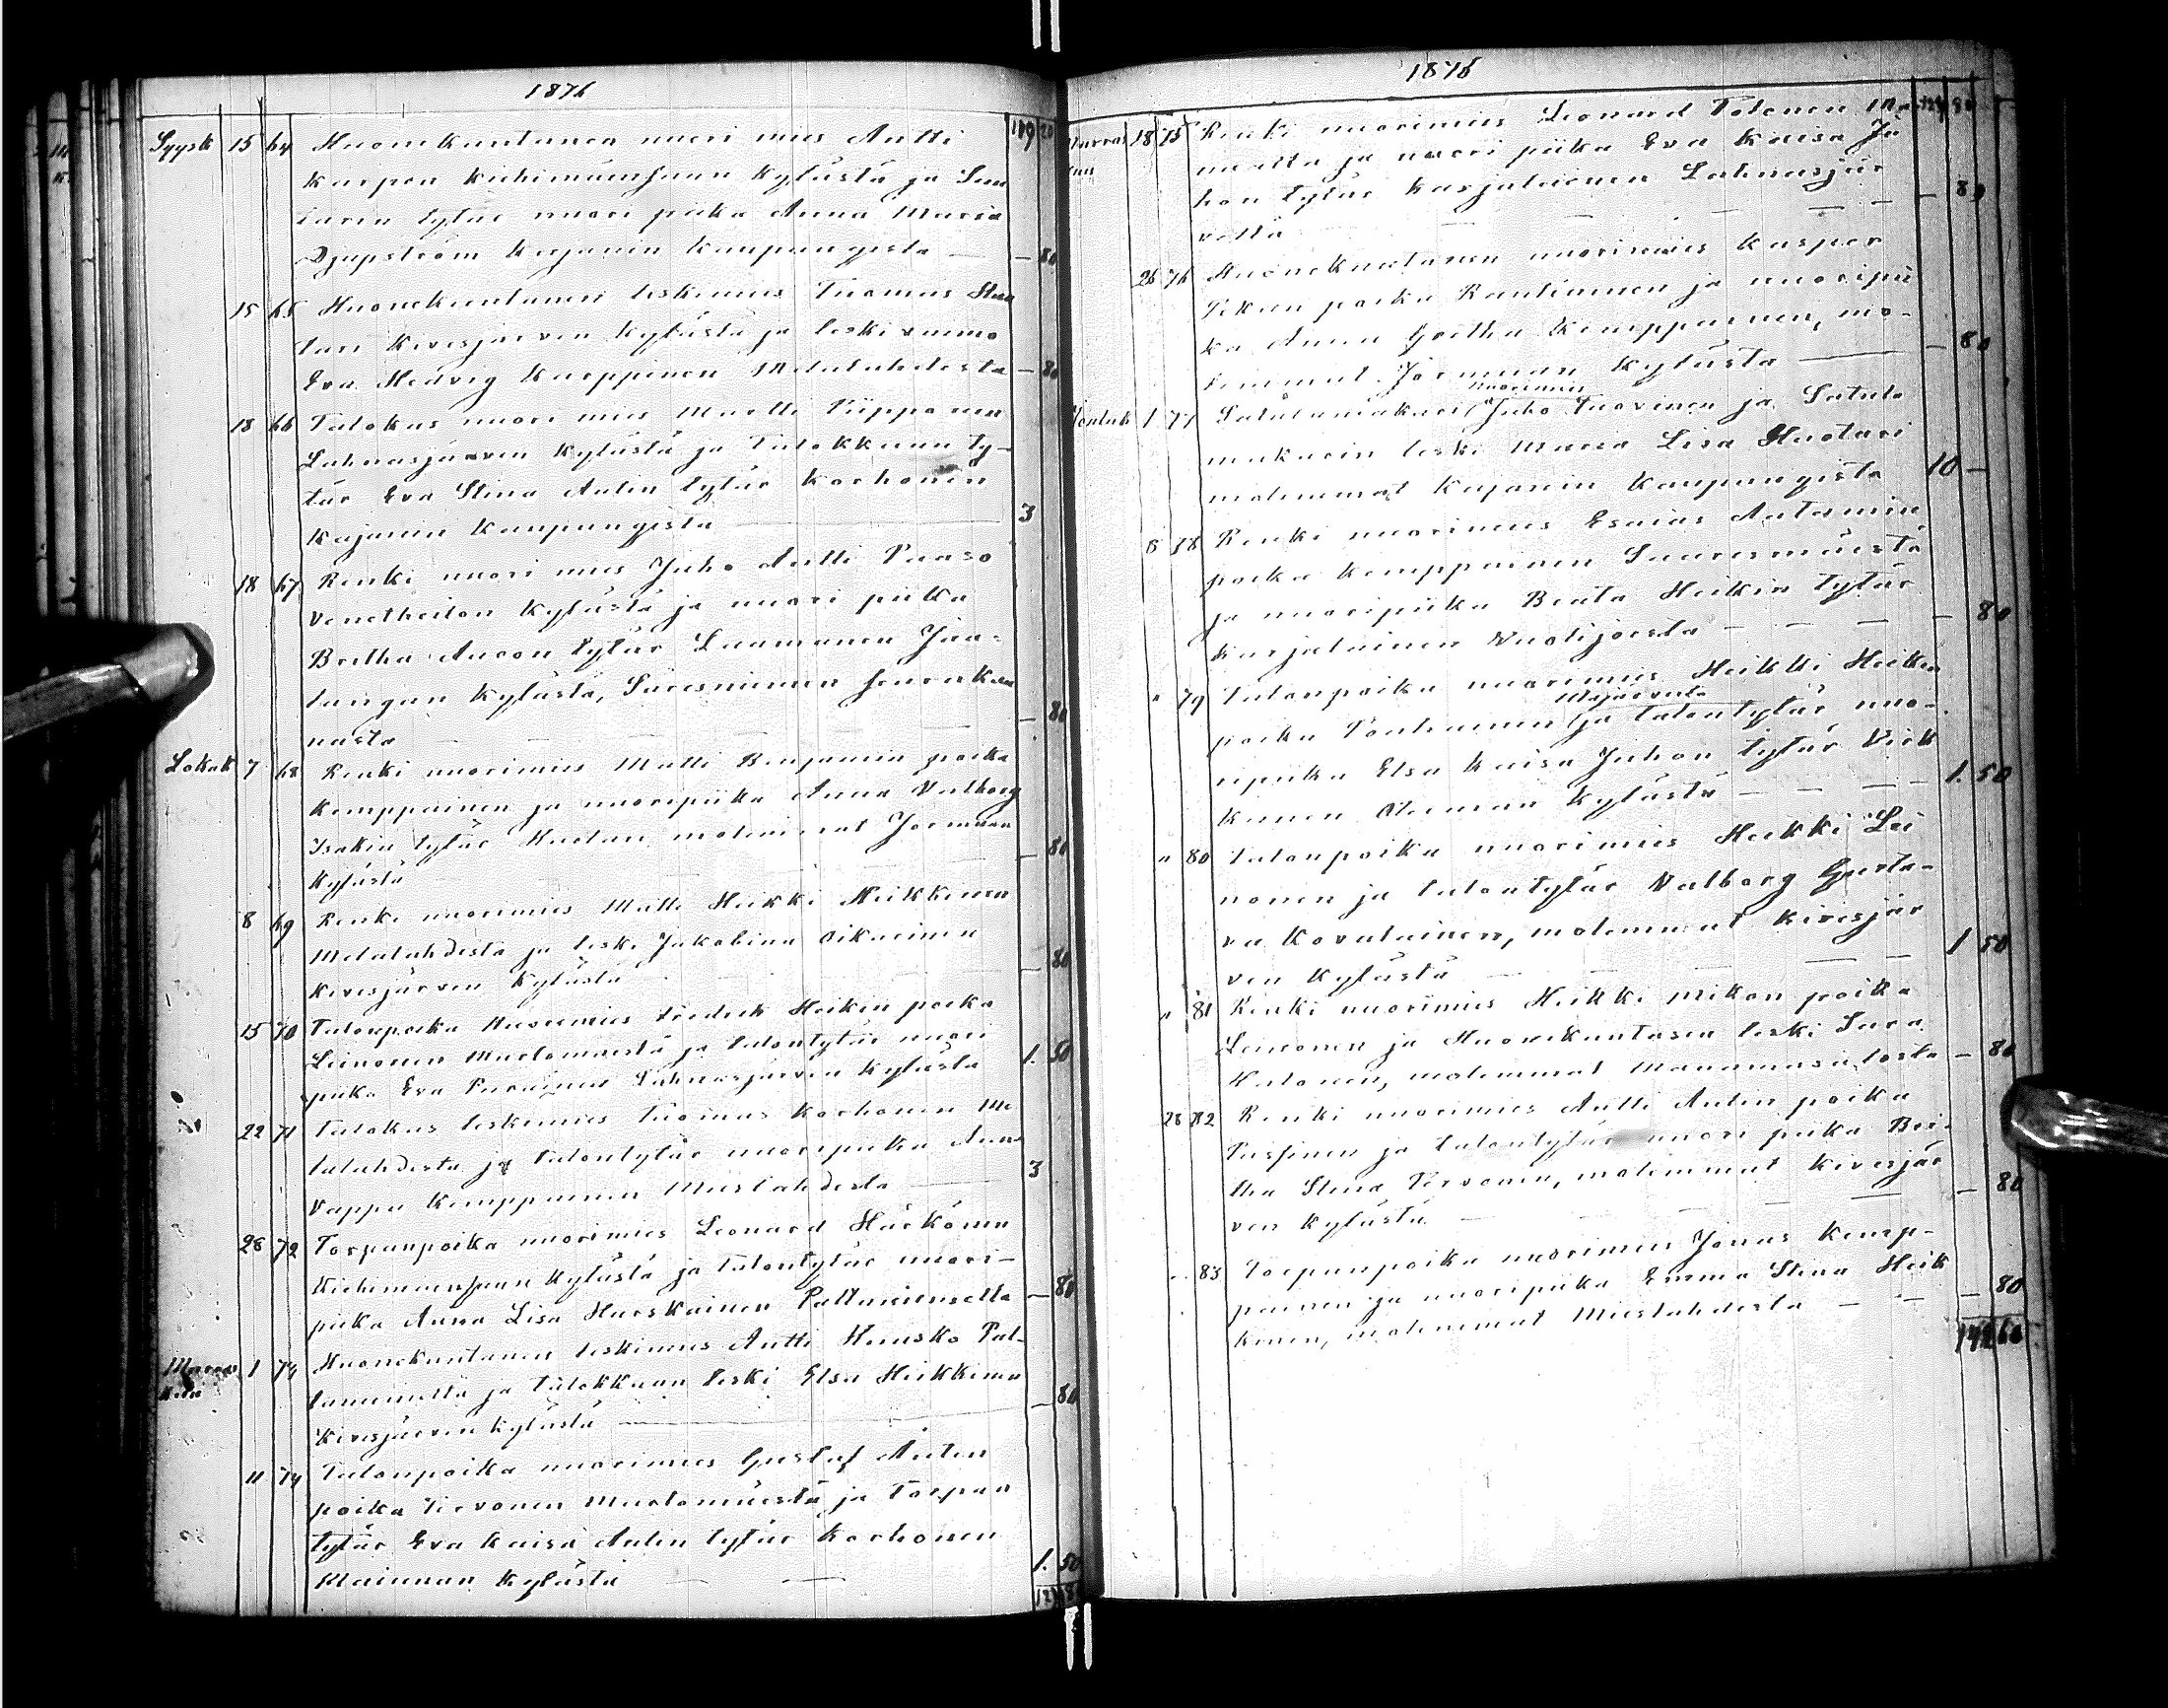 1876
109 20
Syysk 15 64 Huonekuntanen nuori mies Antti
Karpen Kiehimänsuun Kylästä ja
tytär nuori piika Anna Maria
Djupström Kajanin Kaupungista — 80
15 65 Huonekuntanen leskimies Tuomas
Kivesjärven Kylästä ja leskivaimo
Eva Hedvig Karppinen Melalahdesta — 80
18 66 Talokas nuori mies Matti Piipponen
Lahnasjärven Kylästä ja Talokkaan ty-
tär Eva Stina Antin tytär Korhonen
Kajanin Kaupungista 3
18 67 Renki nuori mies Juho Antti
Venetheiton Kylästä ja nuori piika
Britha Aaron tytär Laamanen Jaa-
langan Kylästä, Suvesniemen seurakun
nasta — 80
Lokak 7 68 Renki nuorimies Matti Benjamin poika
Kemppainen ja nuoripiika Anna Valborg
Isakin tytär Huotari molemmat Jormuan
Kylästä — 80
8 69 Renki nuorimies Matti Heikki Heikkinen
Melalahdesta ja leski Jakobina Oikarinen
Kivesjärven Kylästä — 80
15 70 Talonpoika Nuorimies Fredrik Heikin poika
Leinonen Mieslahdesta ja talontytär nuori
piika Eva Lahnasjärven Kylästä 1. 50
22 71 Talokas leskimies Tuomas Korhonen Me
lalahdesta ja talontytär nuoripiika Anna
Vappu Kemppainen Mieslahdesta 3
28 72 Torpanpoika nuorimies Leonard Härkönen
Kiehimänsuun Kylästä ja talontytär nuori-
piika Anna Lisa Huuskoinen Paltaniemellä — 80
Marras Kuu 1 74 Huonekuntanen leskimies Antti Huusko Pal-
taniemellä ja Talokkaan leski Elsa Heikkinen
Kivesjärven Kylästä — 80
11 74 Talonpoika nuorimies Gustaf Antin
poika Tervonen ja Torpan
tytär Eva Kaisa Antin tytär Korhonen
Mainuan Kylästä 1. 50
1876
Marras Kuu 18 75 Renki nuorimies Leonard Tolonen
ja nuori piika Eva Kaisa Ju
hon tytär Karjalainen Lahnasjär
veltä — 80
26 76 Huonekuntanen nuorimies Kasper
poika Rautiainen ja nuoripii
ka Anna Gretha Kemppainen, mo-
lemmat Jormuan Kylästä — 80
Jouluk 1 77 Satulamakari nuorimies Juho Tuovinen ja Satula
makarin leski Maria Lisa Huotari
molemmat Kajanin Kaupungista 10 —
8 78 Renki nuorimies Esaias Antamin
poika Kemppainen Suuresmäestä
ja nuoripiika Beata Heikin tytär
Karjalainen Vuolijoesta — 80
" 79 Talonpoika nuorimies Heikki Heikin
poika ja talontytär nuo-
ripiika Elsa Kaisa Juhon tytär
kinen Kylästä 1. 50
" 80 Talonpoika nuorimies Heikki Lei
nonen ja talontytär Valborg Gusta-
va Kovalainen, molemmat Kivesjär
ven Kylästä 1 50
" 81 Renki nuorimies Heikki Mikon poika
Leinonen ja Huonekuntasen leski Sara
Hutonen, molemmat Manamansalosta — 80
28 82 Renki nuorimies Antti Antin poika
ja talontytär nuori piika Bri-
tha Stina Tervonen, molemmat Kivesjär
ven Kylästä — 80
83 Torpanpoika nuorimies Jonas Kemp-
painen ja nuoripiika Emma Stina Heik
kinen, molemmat Mieslahdesta — 80